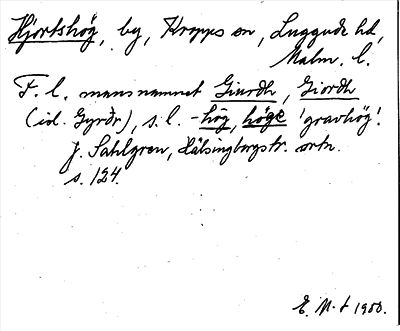 Hjortshög, by, Kropps sn, Luggude hd,
Malm. l.
F. l. mansnamnet Giurdh, Giordh
(isl. Gyrðr), s. l. -hög, höge 'gravhög'.
J. Sahlgren, Hälsingborgstr. ortn.
s. 124.
E. M-t 1950.